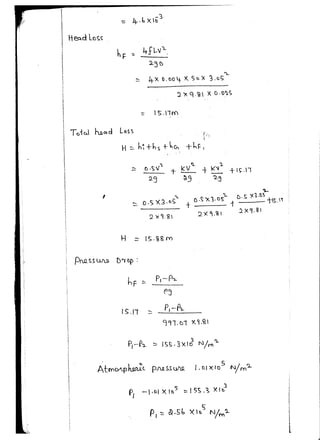 = 4.6 x 10^-3
Head Loss
hF = 4fLV² / 2gD
= 4 x 0.004 x 50 x 3.05² / 2 x 9.81 x 0.035
= 15.17m
Total head Loss
H = hi + hs + ho, + hF,
= 0.5V² / 2g + KV² / 2g + KV² / 2g + 15.17
= 0.5 x 3.05² / 2 x 9.81 + 0.5 x 3.05² / 2 x 9.81 + 0.5 x 3.05² / 2 x 9.81 + 15.17
H = 15.88m
Pressure Drop :
hF = P₁-P₂ / ρg
15.17 = P₁-P₂ / 997.07 x 9.81
P₁-P₂ = 155.3 x 10³ N/m²
Atmospheric pressure 1.01 x 10⁵ N/m²
P₁ - 1.01 x 10⁵ = 155.3 x 10³
P₁ = 2.56 x 10⁵ N/m²